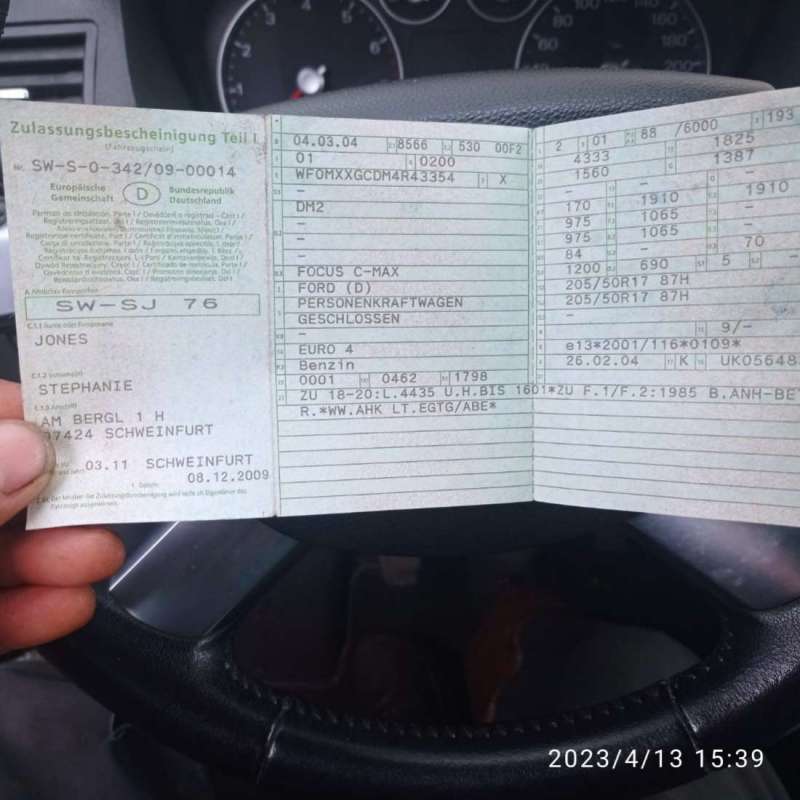 Zulassungsbescheinigung Teil I
(Fahrzeugschein)
Nr. SW-S-0-342/09-00014
Europäische Gemeinschaft
D
Bundesrepublik Deutschland
SW-SJ 76
JONES
STEPHANIE
AM BERGL 1 H
97424 SCHWEINFURT
03.11 SCHWEINFURT
08.12.2009
04.03.04 8566 530 00F2
01 0200
WF0MXXGCDM4R43354 X
–
DM2
–
–
FOCUS C-MAX
FORD (D)
PERSONENKRAFTWAGEN
GESCHLOSSEN
–
EURO 4
Benzin
0001 0462 1798
ZU 18-20:L.4435 U.H.BIS 1601*ZU F.1/F.2:1985 B.ANH-BE
R.*WW.AHK LT.EGTG/ABE*
2 01 88 /6000 193
4333 1825
1560 1387
– – –
170 1910 – 1910
975 1065 –
975 1065 –
84 – 70
1200 690 5 –
205/50R17 87H
205/50R17 87H
–
– 9/–
e13*2001/116*0109*
26.02.04 K UK05648
1 2 3 4 5 6
40 60 80 100 160 180 200
2023/4/13 15:39